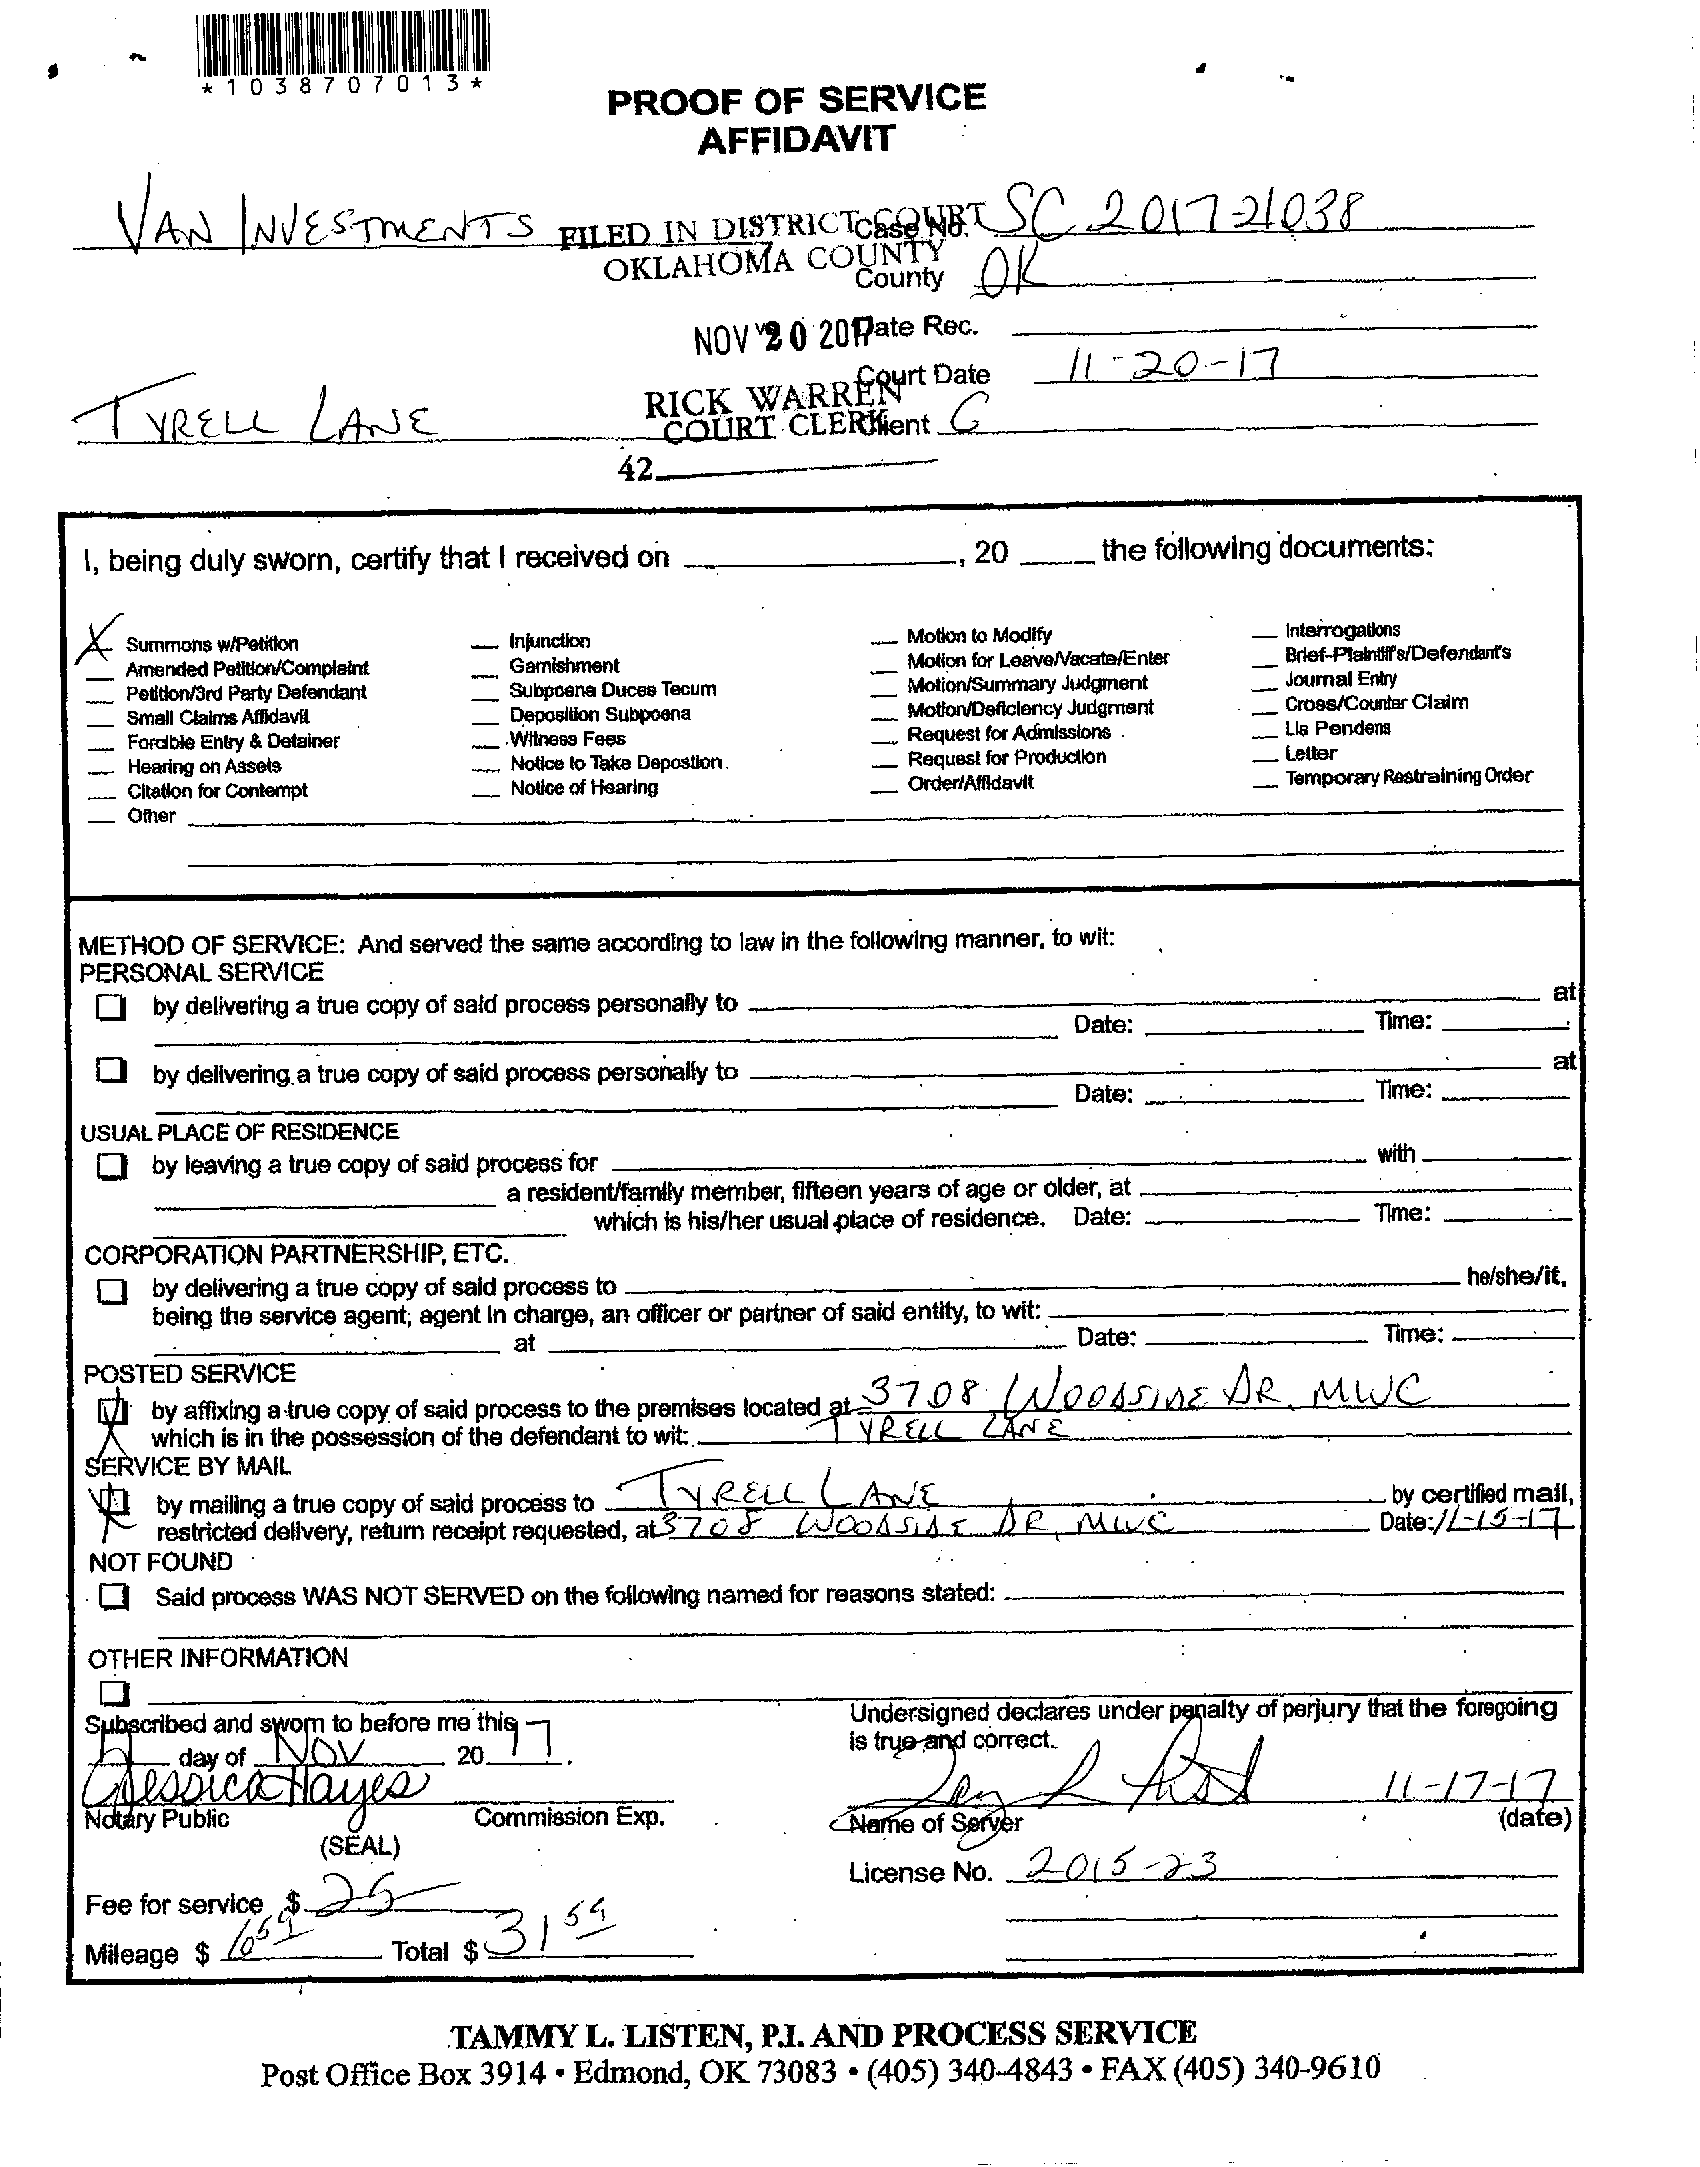 *1038707013*
PROOF OF SERVICE
AFFIDAVIT
VAN INVESTMENTS
FILED IN DISTRICT COURT
OKLAHOMA COUNTY
Case No. SC 2017 21038
County OK
NOV 20 2017
Date Rec.
Court Date 11-20-17
TYRELL LANE
RICK WARREN
COURT CLERK
Client C
42
I, being duly sworn, certify that I received on , 20 the following documents:
X Summons w/Petition
Amended Petition/Complaint
Petition/3rd Party Defendant
Small Claims Affidavit
Forcible Entry & Detainer
Hearing on Assets
Citation for Contempt
Other
Injunction
Garnishment
Subpoena Duces Tecum
Deposition Subpoena
Witness Fees
Notice to Take Depostion
Notice of Hearing
Motion to Modify
Motion for Leave/Vacate/Enter
Motion/Summary Judgment
Motion/Deficiency Judgment
Request for Admissions
Request for Production
Order/Affidavit
Interrogations
Brief-Plaintiff's/Defendant's
Journal Entry
Cross/Counter Claim
Lis Pendens
Letter
Temporary Restraining Order
METHOD OF SERVICE: And served the same according to law in the following manner, to wit:
PERSONAL SERVICE
by delivering a true copy of said process personally to at
Date: Time:
by delivering a true copy of said process personally to at
Date: Time:
USUAL PLACE OF RESIDENCE
by leaving a true copy of said process for with
a resident/family member, fifteen years of age or older, at
which is his/her usual place of residence. Date: Time:
CORPORATION PARTNERSHIP, ETC.
by delivering a true copy of said process to he/she/it,
being the service agent, agent in charge, an officer or partner of said entity, to wit:
at Date: Time:
POSTED SERVICE
by affixing a true copy of said process to the premises located at 3708 WOODSIDE DR, MWC
which is in the possession of the defendant to wit: TYRELL LANE
SERVICE BY MAIL
by mailing a true copy of said process to TYRELL LANE by certified mail,
restricted delivery, return receipt requested, at 3708 WOODSIDE DR, MWC Date: 11-15-17
NOT FOUND
Said process WAS NOT SERVED on the following named for reasons stated:
OTHER INFORMATION
Subscribed and sworn to before me this
day of NOV 20 17
Jessica Hayes
Notary Public Commission Exp.
(SEAL)
Undersigned declares under penalty of perjury that the foregoing
is true and correct.
11-17-17
Name of Server (date)
License No. 2015-23
Fee for service $ 25
Mileage $ 6 59 Total $ 31 59
TAMMY L. LISTEN, P.I. AND PROCESS SERVICE
Post Office Box 3914 • Edmond, OK 73083 • (405) 340-4843 • FAX (405) 340-9610